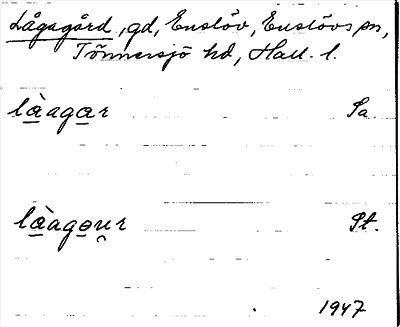 Lågagård, gd, Enslöv, Enslövs sn,
Tönnersjö hd, Hall. l.
là̱aga̱r Sa.
là̱ago̱u̯r St.
1947